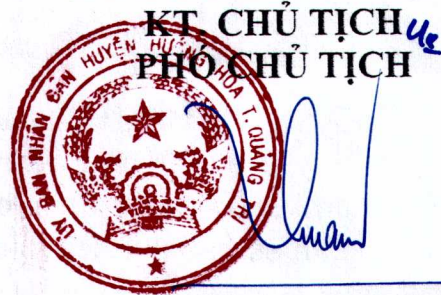 KT. CHỦ TỊCH
PHÓ CHỦ TỊCH
ỦY BAN NHÂN DÂN HUYỆN HƯỚNG HÓA T. QUẢNG TRỊ